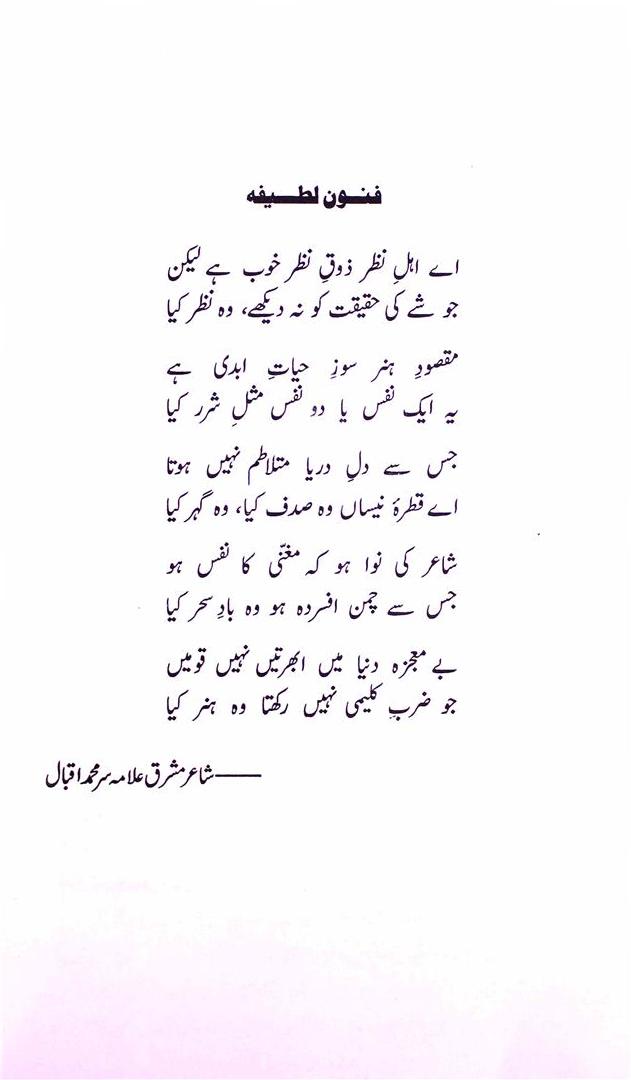 فنون لطیفه
اے اہلِ نظر ذوقِ نظر خوب ہے لیکن
جو شے کی حقیقت کو نہ دیکھے، وہ نظر کیا
مقصودِ ہنر سوزِ حیاتِ ابدی ہے
یہ ایک نفس یا دو نفس مثلِ شرر کیا
جس سے دلِ دریا متلاطم نہیں ہوتا
اے قطرۂ نیساں وہ صدف کیا، وہ گہر کیا
شاعر کی نوا ہو کہ مغنّی کا نفس ہو
جس سے چمن افسردہ ہو وہ بادِ سحر کیا
بے معجزہ دنیا میں ابھرتیں نہیں قومیں
جو ضربِ کلیمی نہیں رکھتا وہ ہنر کیا
——شاعر مشرق علامہ سر محمد اقبال